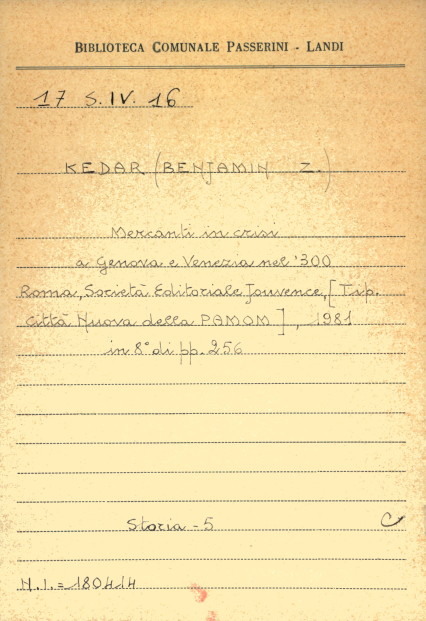 BIBLIOTECA COMUNALE PASSERINI - LANDI
17 S.IV. 16
KEDAR (BENJAMIN Z.)
Mercanti in crisi
a Genova e Venezia nel '300
Roma, Società Editoriale Jouvence, [Tip.
Città Nuova della PAMOM], 1981
in 8° di pp. 256
Storia - 5 C
N.I. = 180414